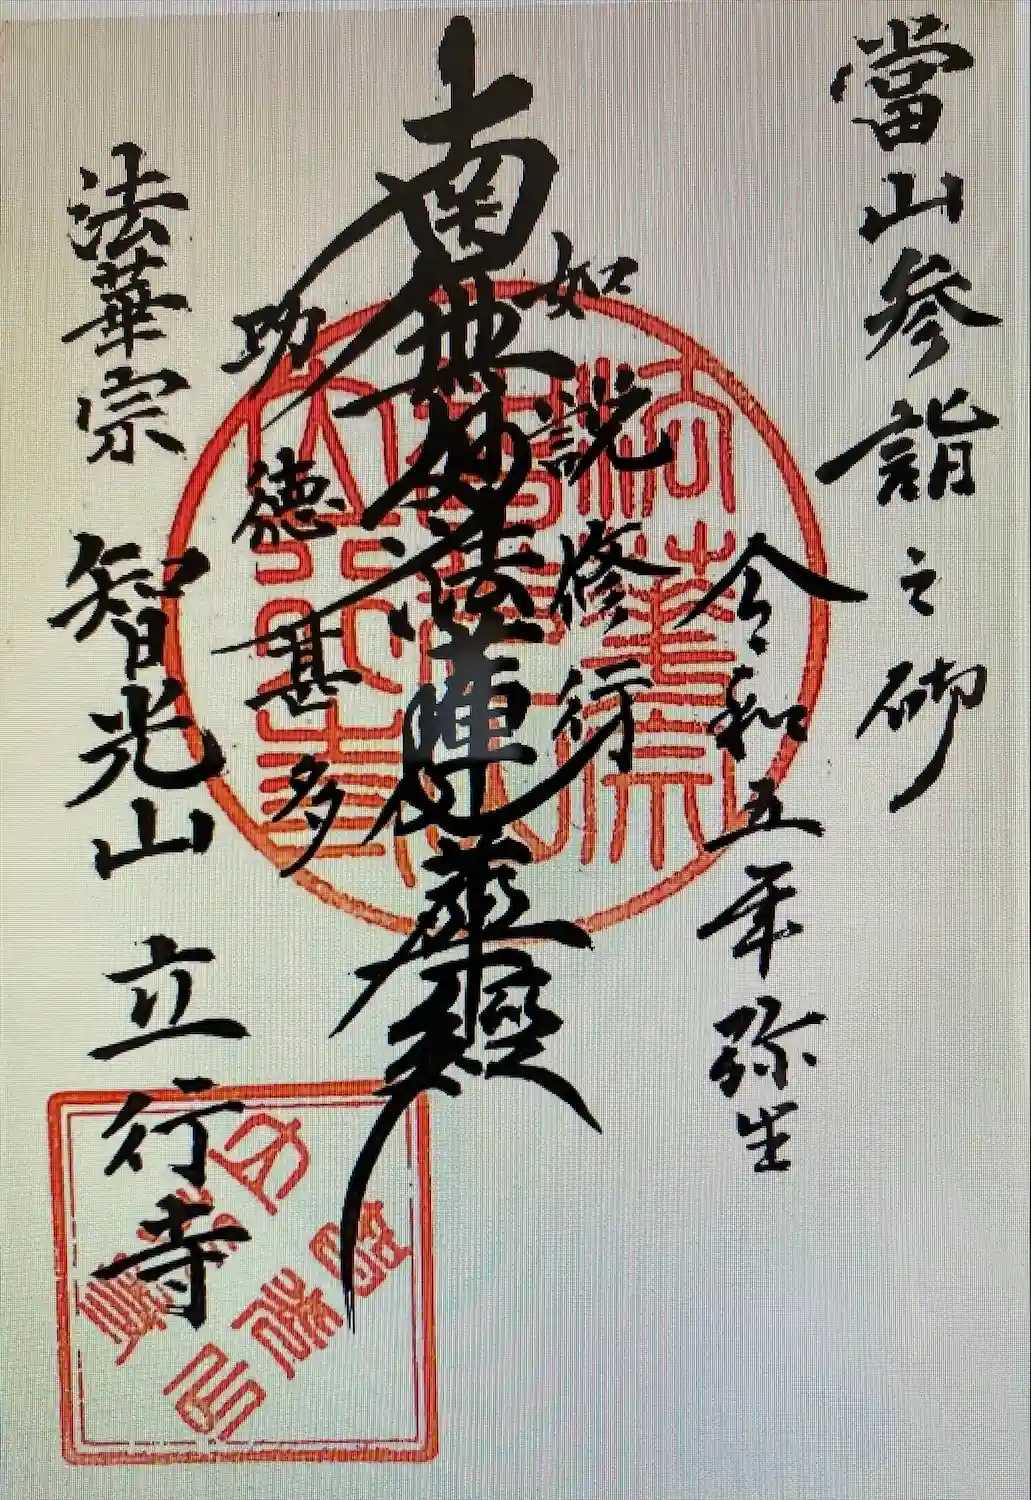 當山参詣之砌
令和五年弥生
如説修行
南無妙法蓮華經
功徳甚多
法華宗 智光山 立行寺